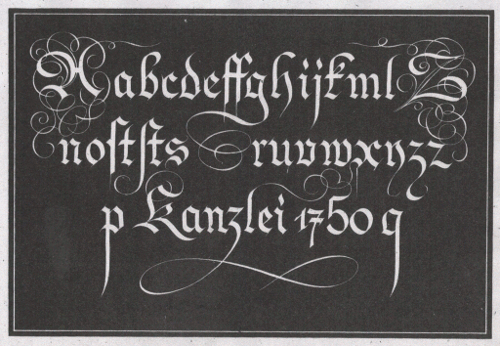 Aabcdeffghijkml Z
noſtſts ruvwxyzz
p Kanzlei 1750 q